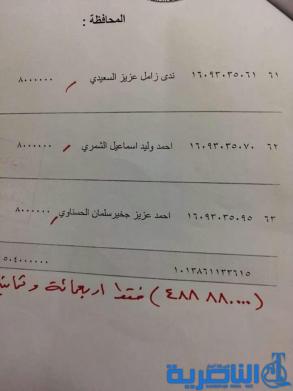 المحافظة :
٦١ ١٦٠٩٣٠٣٥٠٦١ ندى زامل عزيز السعيدي ٨٠٠٠٠٠٠
٦٢ ١٦٠٩٣٠٣٥٠٧٠ احمد وليد اسماعيل الشمري ٨٠٠٠٠٠٠
٦٣ ١٦٠٩٣٠٣٥٠٩٥ احمد عزيز جخير سلمان الحسناوي ٨٠٠٠٠٠٠
٥٠٤٠٠٠٠٠٠
١٠١٣٨٦١١٣٣٦١٥
فقط اربعمائة
الناصرية